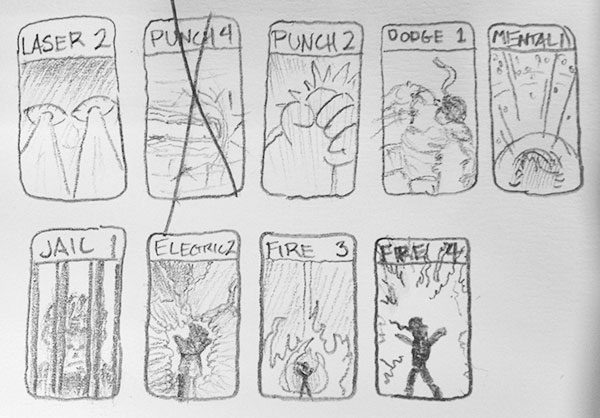 LASER 2
PUNCH 4
PUNCH 2
DODGE 1
MENTAL 1
JAIL 1
ELECTRIC 2
FIRE 3
FIRE 4